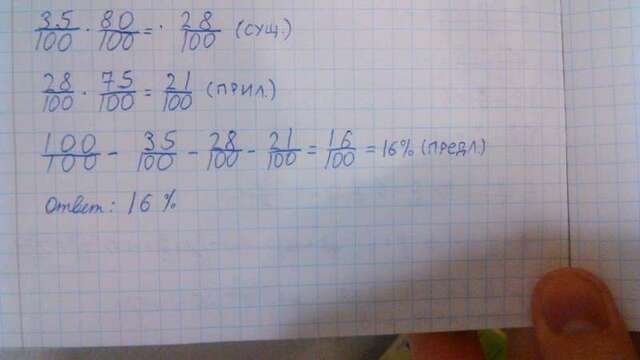 35/100 · 80/100 = · 28/100 (сущ.)
28/100 · 75/100 = 21/100 (прил.)
100/100 - 35/100 - 28/100 - 21/100 = 16/100 = 16% (предл.)
Ответ: 16 %